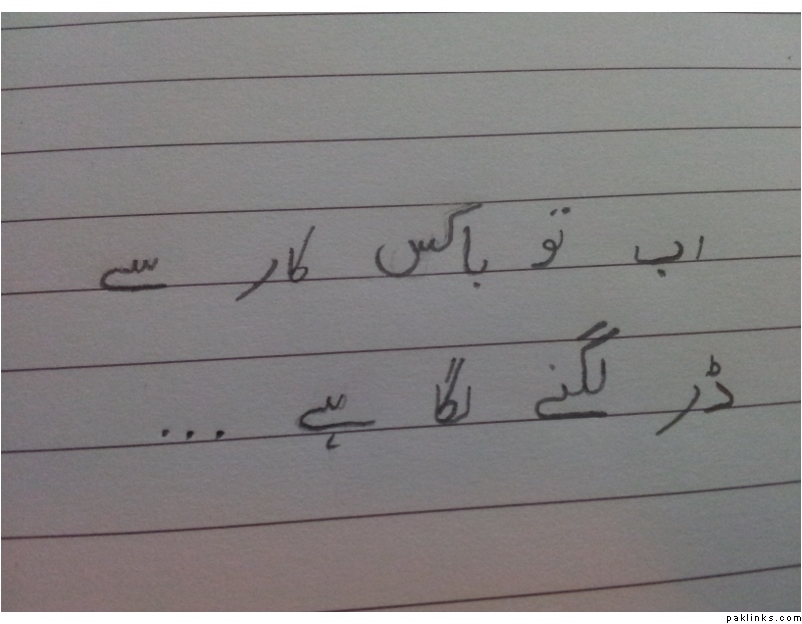 اب تو باکس کار سے
ڈر لگنے لگا ہے ...
paklinks.com